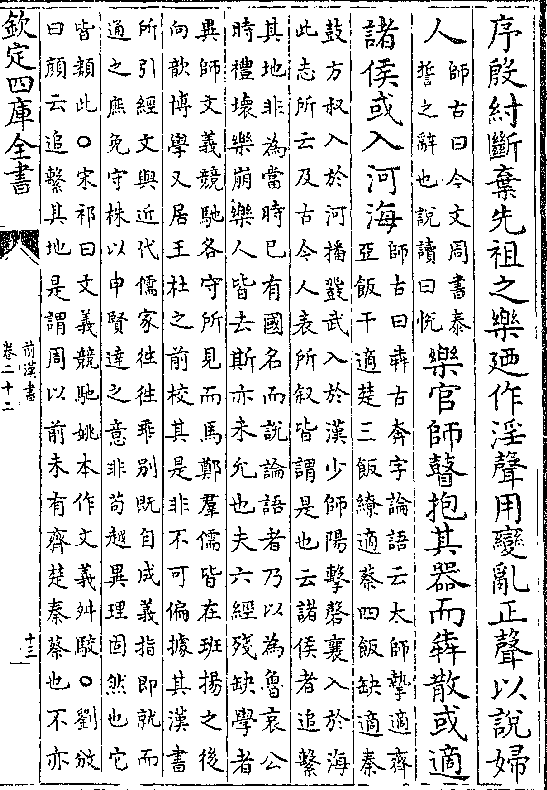 序殷紂斷棄先祖之樂廼作淫聲用變亂正聲以說婦
人師古曰今文周書泰
誓之辭也說讀曰悅
樂官師瞽抱其器而犇散或適
諸侯或入河海師古曰犇古奔字論語云大師摯適齊
亞飯干適楚三飯繚適蔡四飯缺適秦
鼓方叔入於河播鼗武入於漢少師陽擊磬襄入於海
此志所云及古今人表所叙皆謂是也云諸侯者追繫
其地非為當時已有國名而說論語者乃以為魯哀公
時禮壞樂崩樂人皆去斯亦未允也夫六經殘缺學者
異師文義競馳各守所見而馬鄭羣儒皆在班揚之後
向歆博學又居王杜之前校其是非不可偏據其漢書
所引經文與近代儒家往往乖別既自成義指即就而
通之庶免守株以申賢達之意非苟越異理固然也它
皆類此○宋祁曰文義競馳姚本作文義舛駮○劉攽
曰顔云追繫其地是謂周以前未有齊楚秦蔡也不亦
欽定四庫全書
前漢書
卷二十二
十三